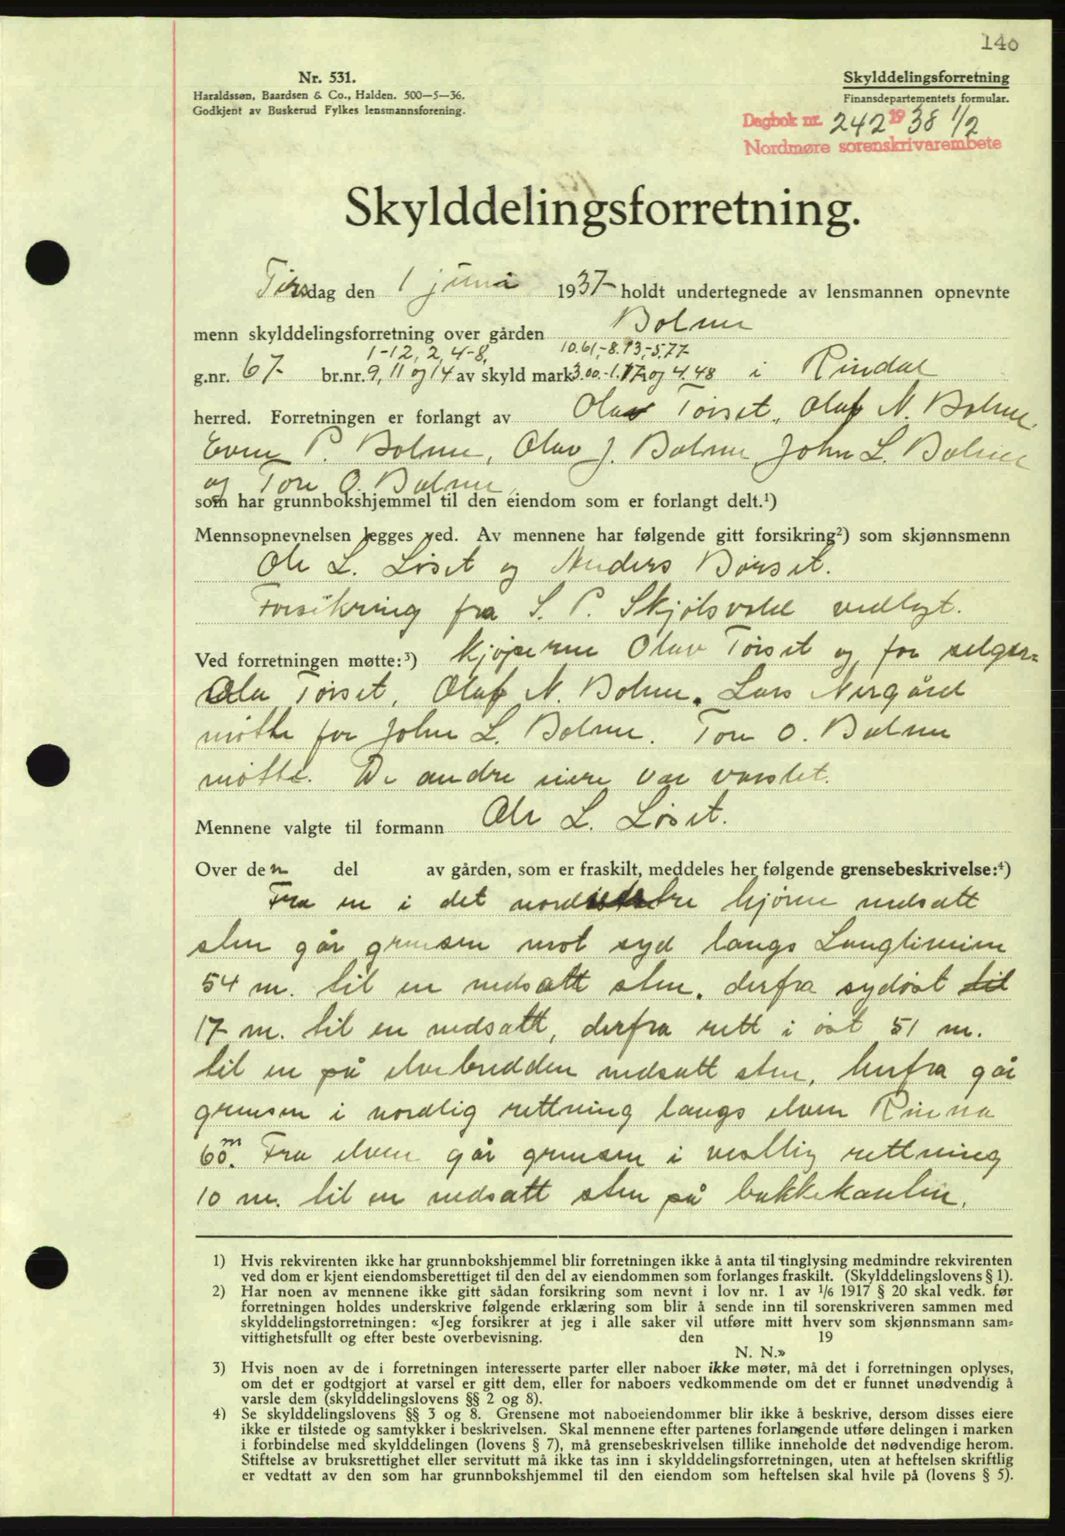 140
Nr. 531.
Haraldssøn, Baardsen & Co., Halden. 500—5—36.
Godkjent av Buskerud Fylkes lensmannsforening.
Skylddelingsforretning
Finansdepartementets formular.
Dagbok nr. 242 1938 1/2
Nordmøre sorenskrivarembete
Skylddelingsforretning.
Tirsdag den 1 juni 1937- holdt undertegnede av lensmannen opnevnte
menn skylddelingsforretning over gården Bolme
1-12, 2, 4-8, 10.61,-8.93,-5.77-
g.nr. 67- br.nr. 9, 11 og 14 av skyld mark 3.00.-1.17, og 4.48 i Rindal
herred. Forretningen er forlangt av Ola Tørset, Olaf N. Bolme,
Even P. Bolme, Olav J. Bolme John L. Bolme
og Tore O. Bolme,
som har grunnbokshjemmel til den eiendom som er forlangt delt.¹)
Mennsopnevnelsen legges ved. Av mennene har følgende gitt forsikring²) som skjønnsmenn
Ole L. Løset og Anders Børset.
Forsikring fra S. P. Skjølsvold vedlagt.
Ved forretningen møtte:³) kjøperne Olav Tørset og for selger=
Ola Tørset, Olaf N. Bolme. Lars Nergård
møtte for John L. Bolme. Tore O. Bolme
møtte. De andre eiere var varslet.
Mennene valgte til formann Ole L. Løset.
Over den del av gården, som er fraskilt, meddeles her følgende grensebeskrivelse:⁴)
Fra en i det nord hjørne nedsatt
sten går grensen mot syd langs Langlimien
54 m. til en nedsatt sten, derfra sydøst til
17 m. til en nedsatt, derfra rett i øst 51 m.
til en på elvebredden nedsatt sten, herfra går
grensen i nordlig rettning langs elven Rinna
60 m. Fra elven går grensen i vestlig rettning
10 m. til en nedsatt sten på bakkekanten,
1) Hvis rekvirenten ikke har grunnbokshjemmel blir forretningen ikke å anta til tinglysing medmindre rekvirenten
ved dom er kjent eiendomsberettiget til den del av eiendommen som forlanges fraskilt. (Skylddelingslovens § 1).
2) Har noen av mennene ikke gitt sådan forsikring som nevnt i lov nr. 1 av 1/6 1917 § 20 skal vedk. før
forretningen holdes underskrive følgende erklæring som blir å sende inn til sorenskriveren sammen med
skylddelingsforretningen: «Jeg forsikrer at jeg i alle saker vil utføre mitt hverv som skjønnsmann sam=
vittighetsfullt og efter beste overbevisning. den 19
N. N.»
3) Hvis noen av de i forretningen interesserte parter eller naboer ikke møter, må det i forretningen oplyses,
om det er godtgjort at varsel er gitt dem, eller for naboers vedkommende om det er funnet unødvendig å
varsle dem (skylddelingslovens §§ 2 og 8).
4) Se skylddelingslovens §§ 3 og 8. Grensene mot naboeiendommer blir ikke å beskrive, dersom disses eiere
ikke er tilstede og samtykker i beskrivelsen. Skal mennene efter partenes forlangende utføre delingen i marken
i forbindelse med skylddelingen (lovens § 7), må grensebeskrivelsen tillike inneholde det nødvendige herom.
Stiftelse av bruksrettighet eller servitutt må ikke tas inn i skylddelingsforretningen, uten at heftelsen skriftlig
er vedtatt av den som har grunnbokshjemmel til den eiendom som heftelsen skal hvile på (lovens § 5).